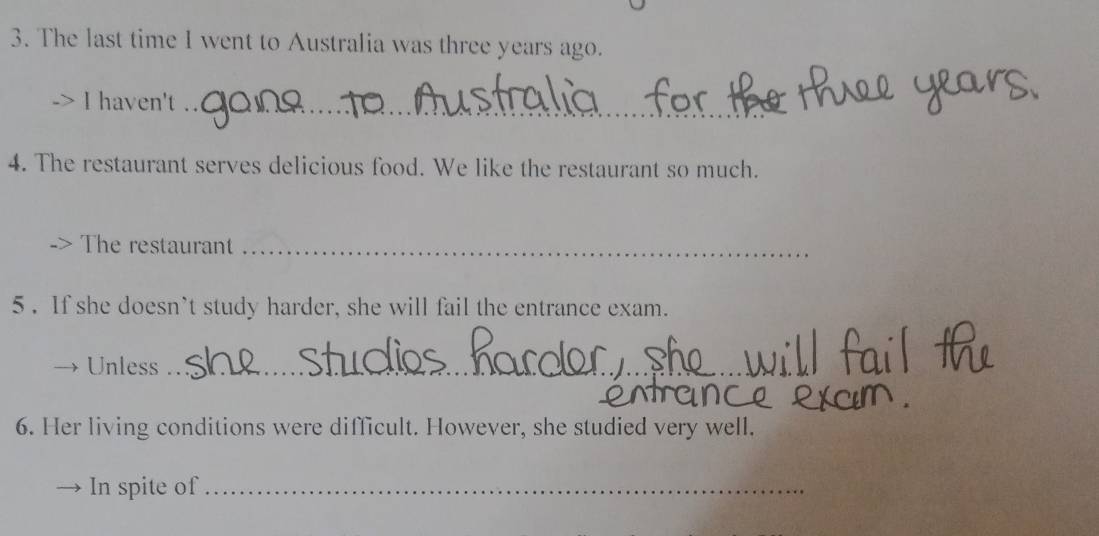 3. The last time I went to Australia was three years ago.
-> I haven't gone to Australia for three years.
4. The restaurant serves delicious food. We like the restaurant so much.
-> The restaurant ................
5. If she doesn't study harder, she will fail the entrance exam.
→ Unless she studies harder, she will fail the
entrance exam.
6. Her living conditions were difficult. However, she studied very well.
→ In spite of ................